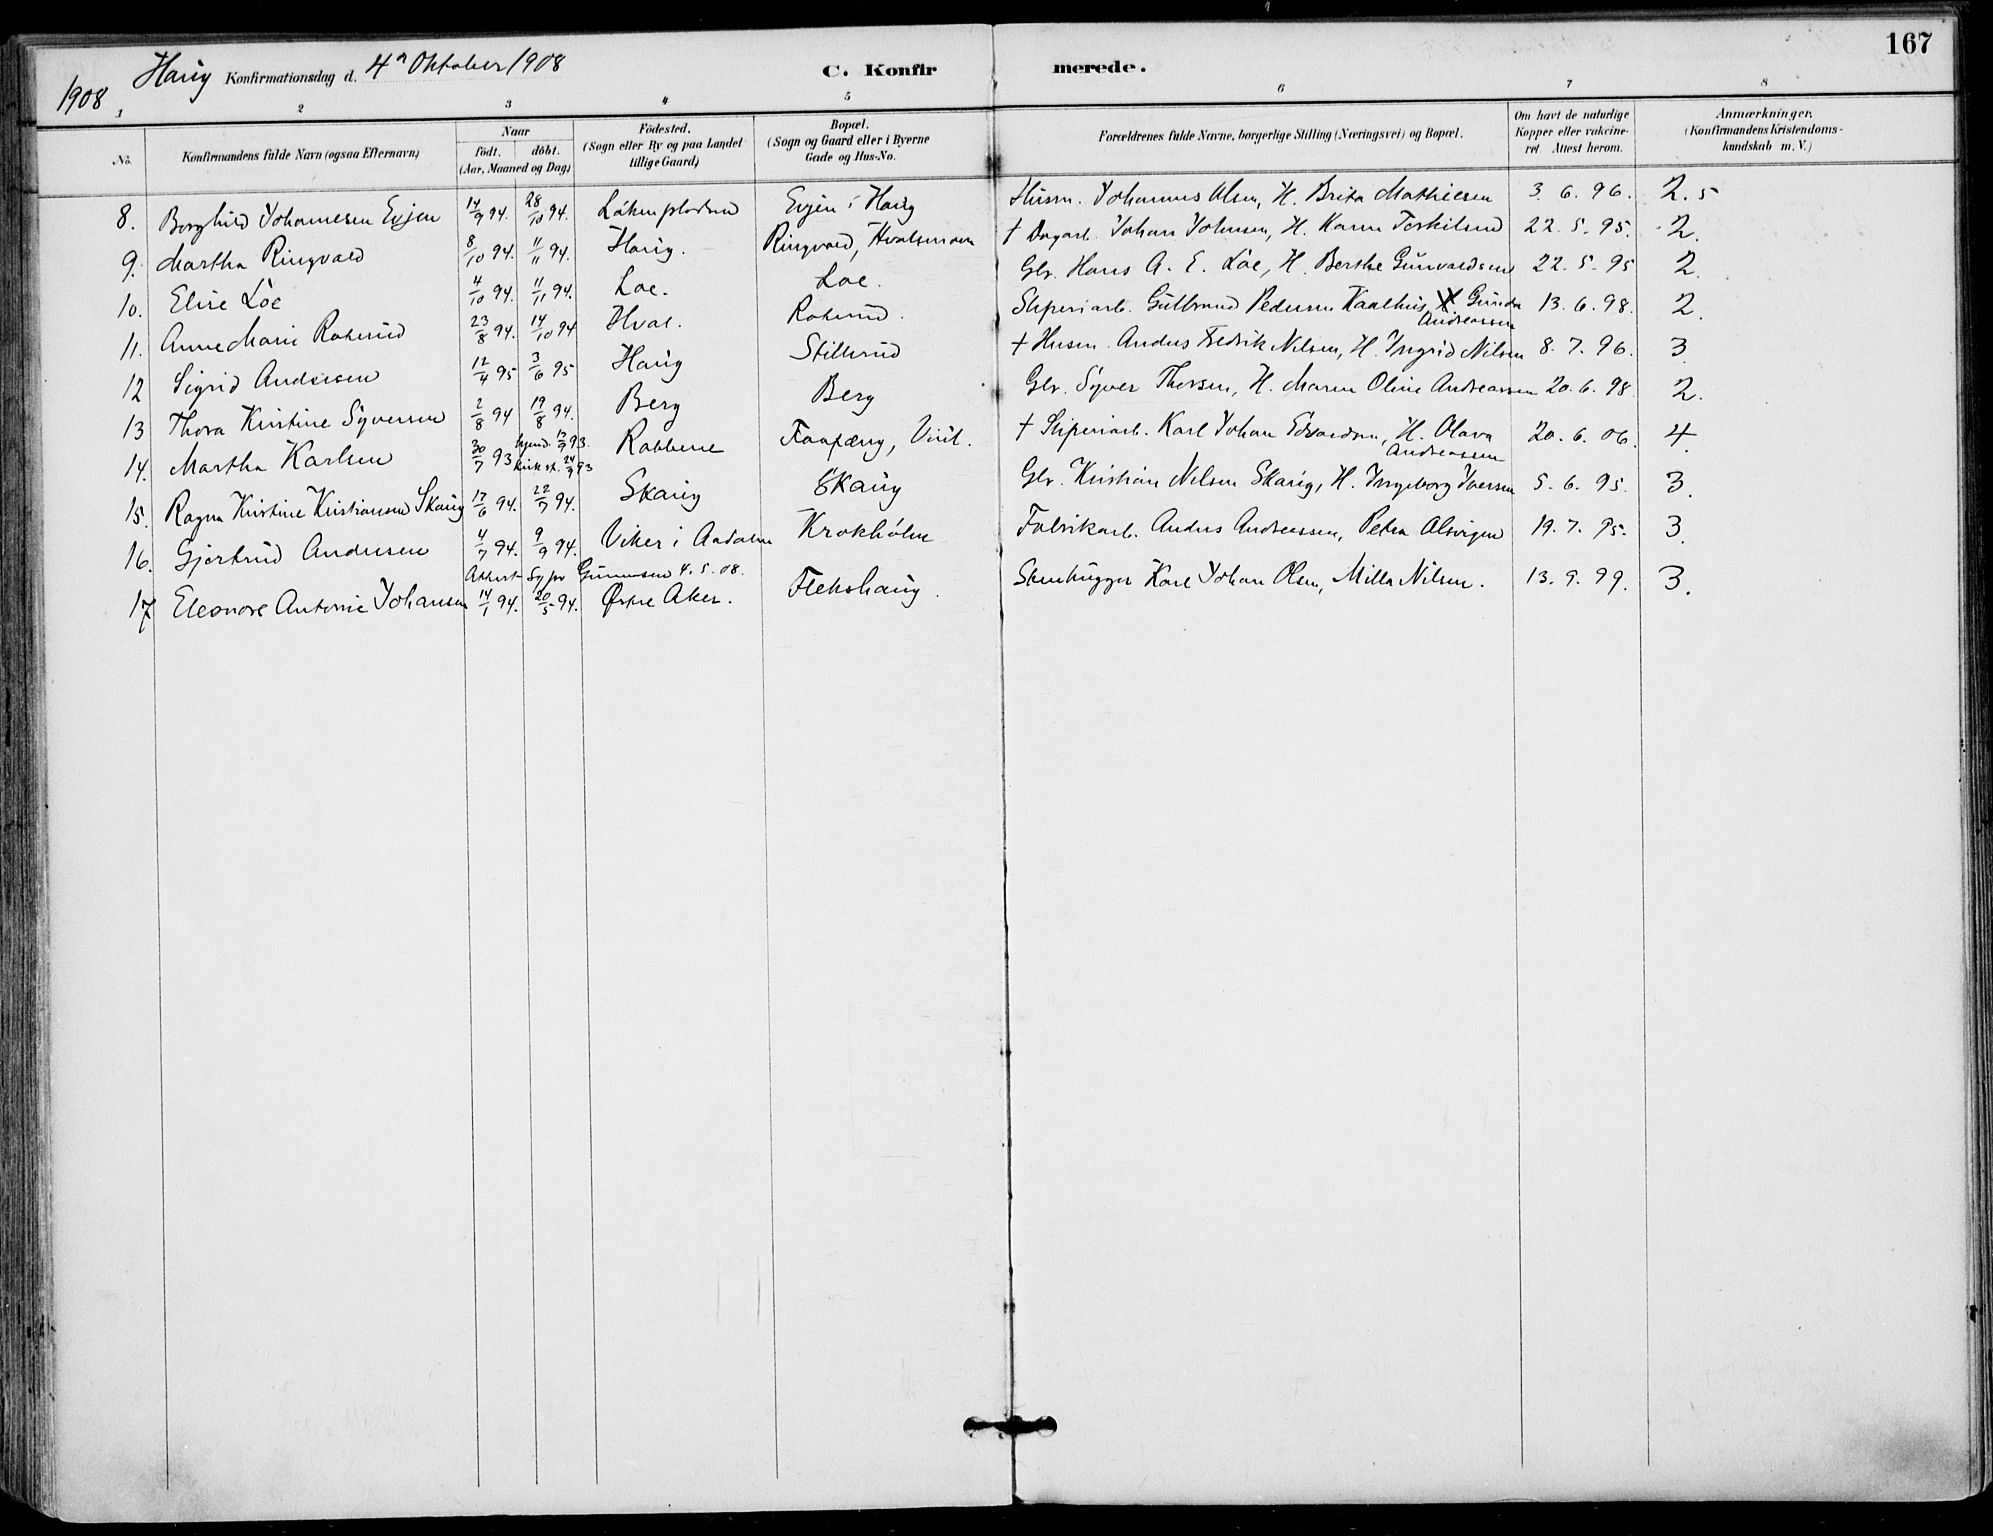 167
Haug Konfirmationsdag d. 4de Oktober 1908 C. Konfirmerede.
1908
1 2 3 4 5 6 7 8
No. Konfirmandens fulde Navn (ogsaa Efternavn) Naar födt. döbt. (Aar, Maaned og Dag) Födested. (Sogn eller By og paa Landet tillige Gaard) Bopæl. (Sogn og Gaard eller i Byerne Gade og Hus-No.) Forældrenes fulde Navne, borgerlige Stilling (Næringsvei) og Bopæl. Om havt de naturlige Kopper eller vakcineret. Attest herom. Anmærkninger. (Konfirmandens Kristendomskundskab m. V.)
8. Borghild Johannesen Evjen 14/9 94. 28/10 94. Evjen i Haug Husm. Johannes Olsen, H. Brita Mathiesen 3. 6. 96. 2.5
9. Martha Ringvold 8/10 94. 11/11 94. Haug. Ringvold, Hvalsmoen † Dagarb. Johan Johnsen, H. Karen Terkilsen 22. 5. 95. 2.
10. Elise Löe 4/10 94. 11/11 94. Loe. Loe. Gbr. Hans A. E. Löe, H. Berthe Gunvaldsen 22. 5. 95 2.
11. Anne Marie Roterud 23/8 94. 14/10 94 Hval. Roterud. Sliperiarb. Gulbrand Pedersen Kaalhus, Gunda Andreassen 13. 6. 98. 2.
12 Sigrid Andersen 12/4 95 3/6 95 Haug Stillerud † Husm. Anders Fredrik Nilsen, H. Ingrid Nilsen 8. 7. 96. 3
13 Thora Kristine Syversen 2/8 94 19/8 94. Berg Berg Gbr. Syver Thorsen, H. Maren Oline Andreassen 20. 6. 98. 2.
14. Martha Karlsen 30/7 93 hjemd. 12/9 93. kirkest. 24/9 93 Robberne Faafæng, Viril. † Sliperiarb. Karl Johan Edvardsen, H. Olava Andreassen 20. 6. 06. 4.
15. Ragna Kristine Kristiansen Skaug 17/6 94. 22/7 94. Skaug Skaug Gbr. Kristian Nilsen Skaug, H. Ingeborg Iversen 5. 6. 95. 3.
16. Gjertrud Andersen 4/7 94. 9/9 94. Viker i Aadalen Krokholm Fabrikarb. Anders Andreassen, Petra Olsvigen 19. 7. 95. 3.
Attest Sgpr Gunnesen 4. 5. 08.
17 Eleonore Antonie Johansen 14/1 94. 20/5 94. Østre Aker. Flekshaug. Stenhugger Karl Johan Olsen, Milla Nilsen. 13. 9. 99. 3.